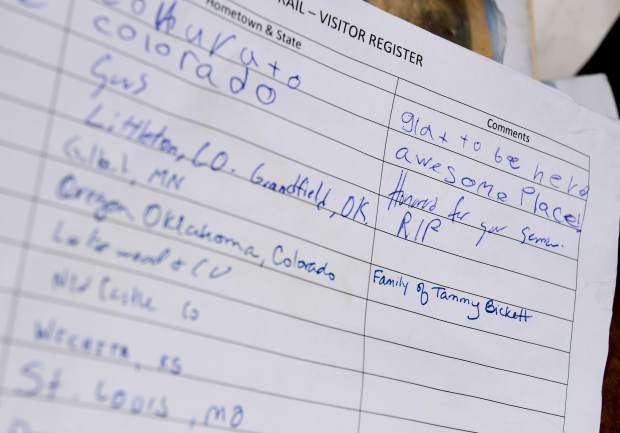 AIL – VISITOR REGISTER
Hometown & State
Comments
colorado
glat to be here
colorado
awesome Place!
Gus
Honored for your service.
Littleton, CO. Grandfield, OK.
RIP
MN
Oregon Oklahoma, Colorado
Family of Tammy Bickett
Lakewood CO
New Castle Co
Wichita, KS
St. Louis, MO